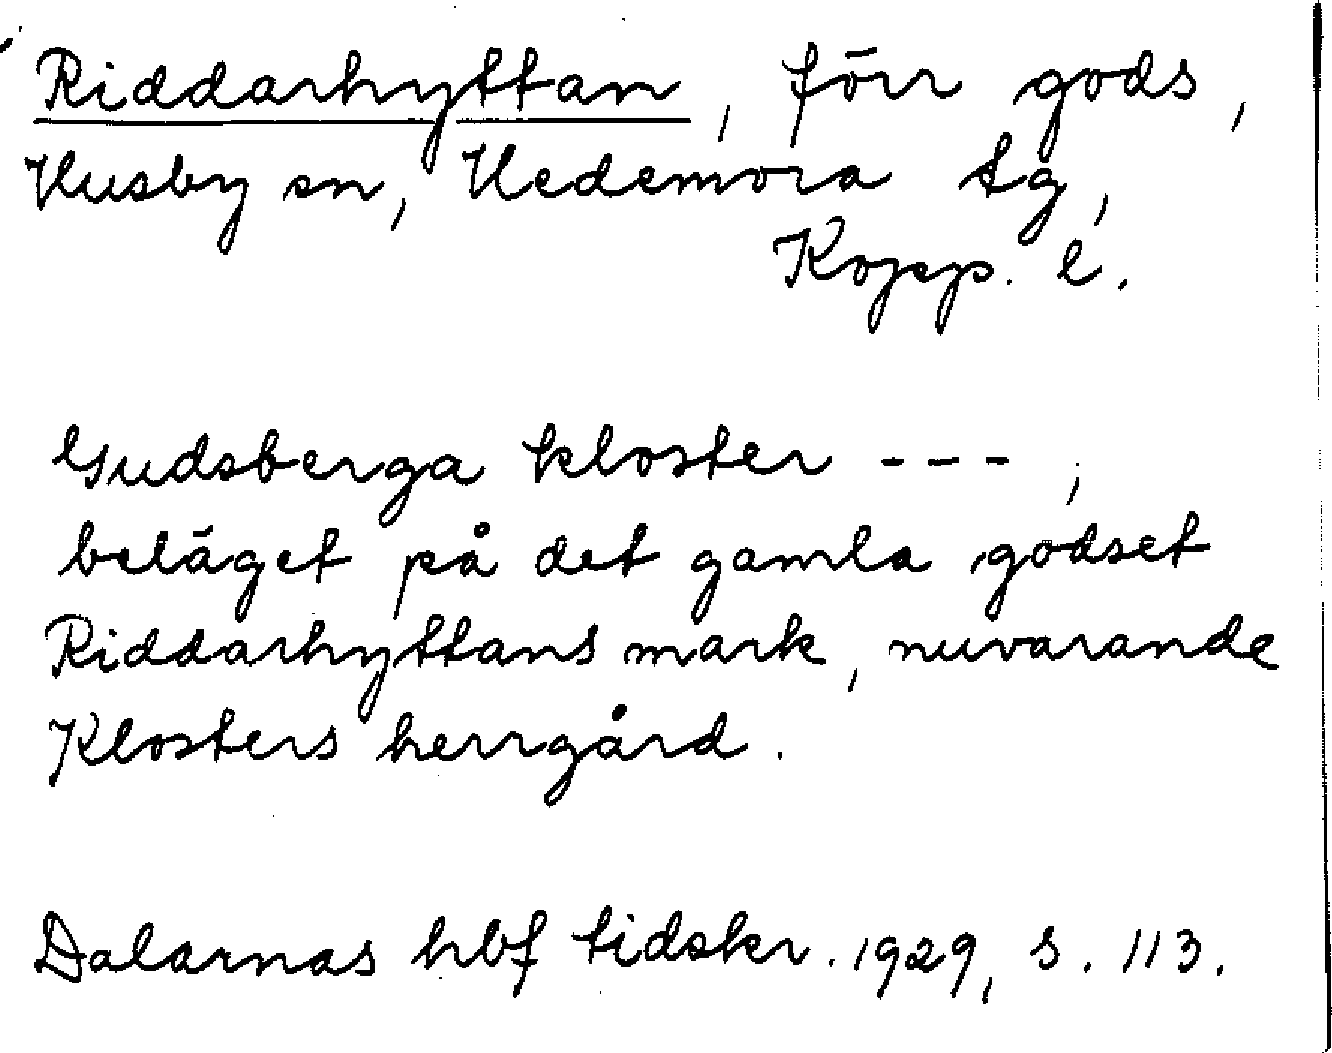 Riddarhyttan, förr gods,
Husby sn, Hedemora tg,
Kopp. l.
Gudsberga kloster ---,
beläget på det gamla godset
Riddarhyttans mark, nuvarande
Klosters herrgård.
Dalarnas hbf tidskr. 1929, s. 113.